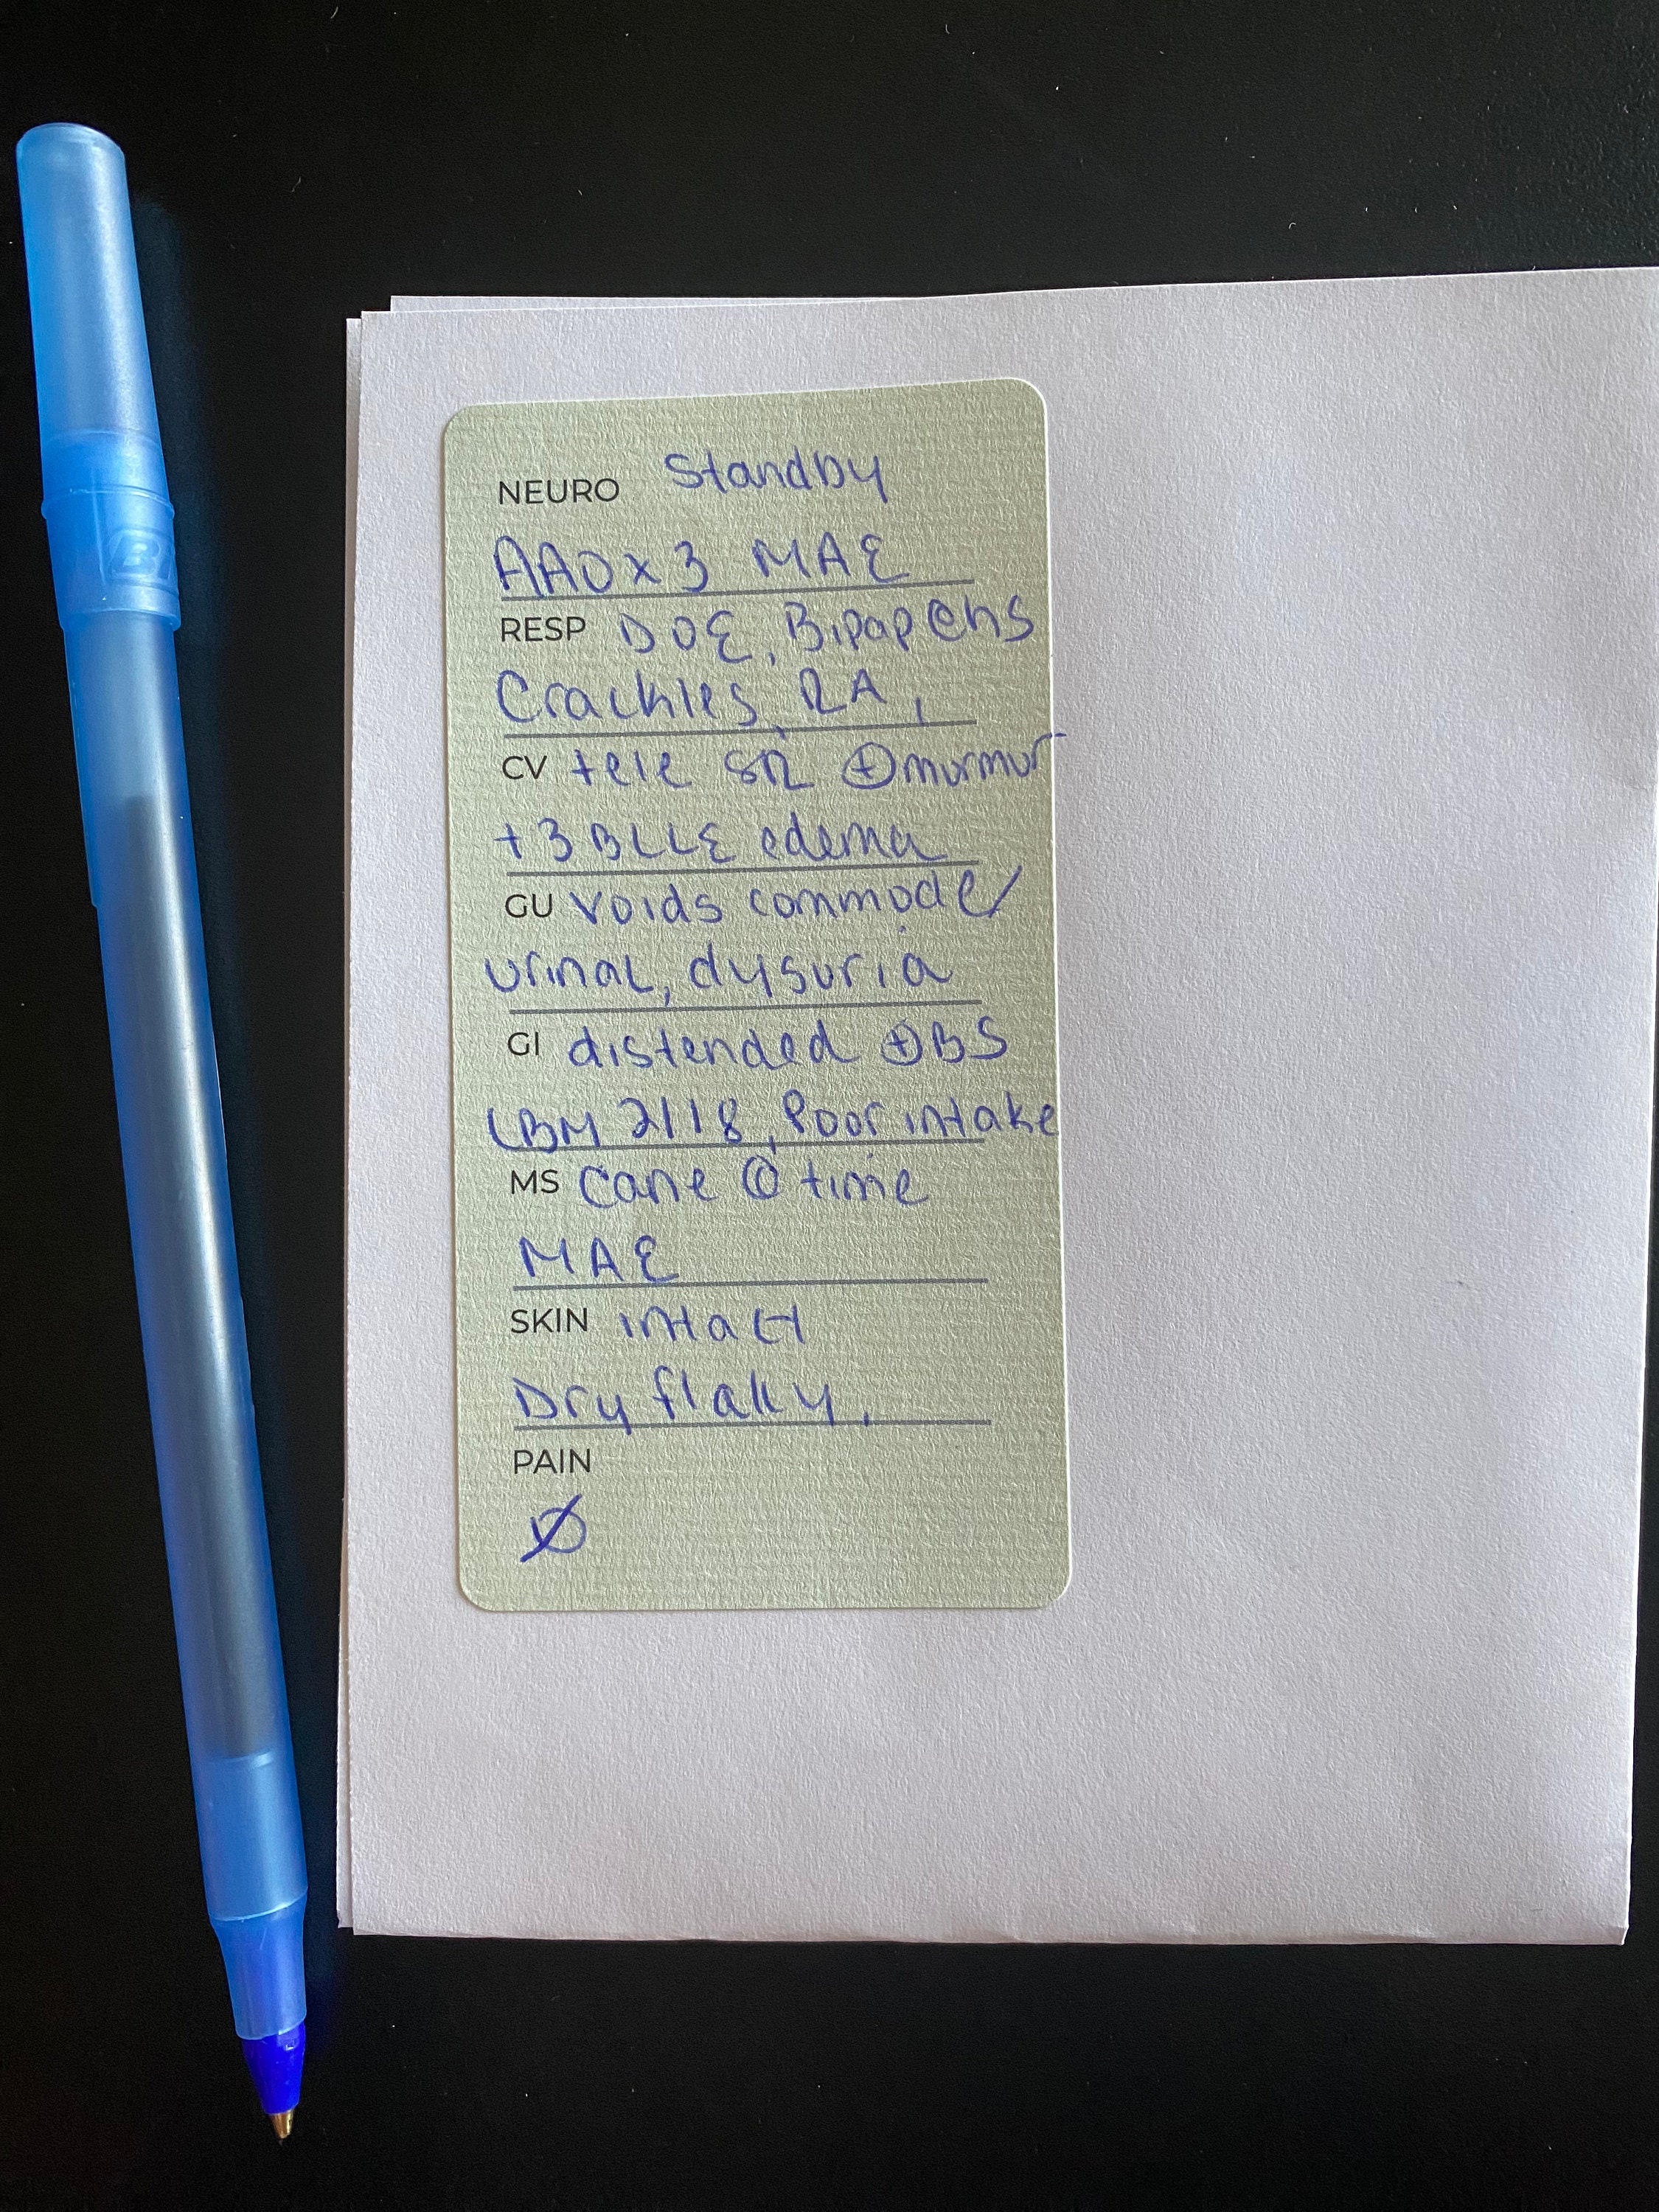 NEURO Standby
AAOx3 MAE
RESP DOE, Bipap @hs
Crackles, RA,
CV tele SR ⊕murmur
+3 BLLE edema
GU voids commode/
urinal, dysuria
GI distended ⊕BS
LBM 2/18, Poor intake
MS Cane @ time
MAE
SKIN intact
Dry flaky,
PAIN
Ø